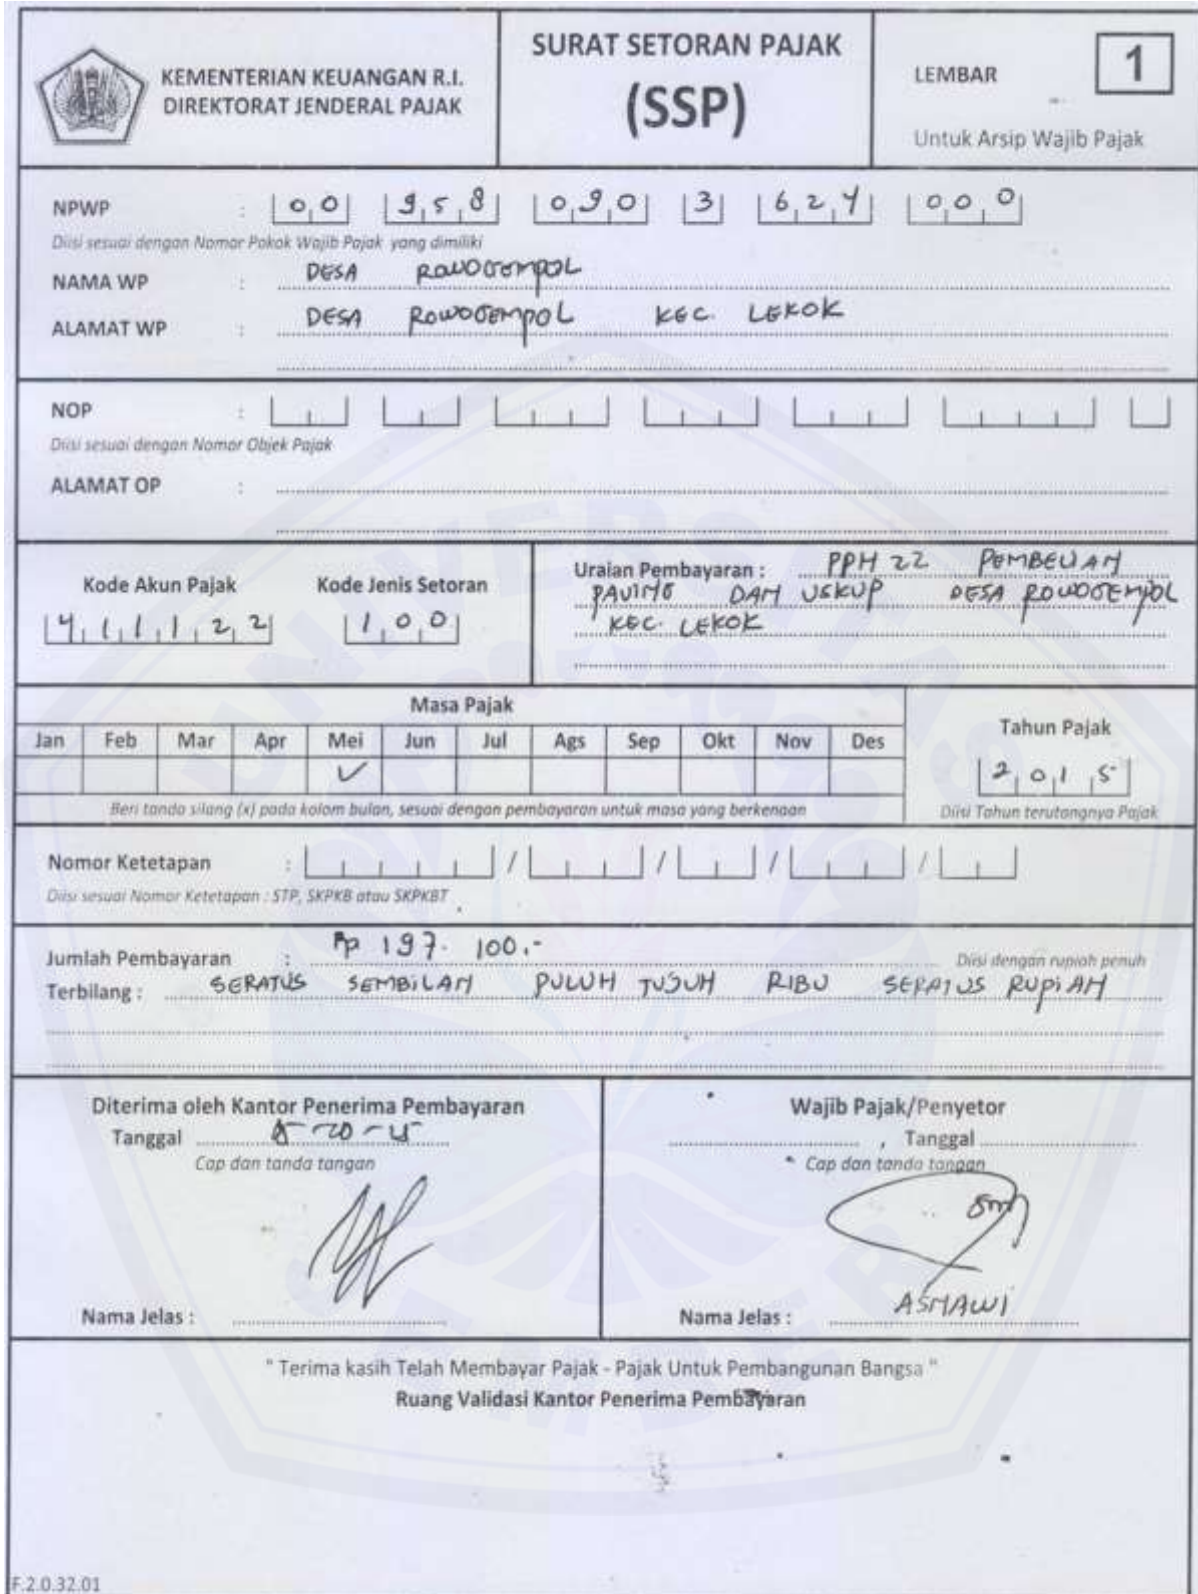 KEMENTERIAN KEUANGAN R.I.
DIREKTORAT JENDERAL PAJAK
SURAT SETORAN PAJAK
(SSP)
LEMBAR 1
Untuk Arsip Wajib Pajak
NPWP : 00 958 090 3 624 000
Diisi sesuai dengan Nomor Pokok Wajib Pajak yang dimiliki
NAMA WP : DESA ROWOGEMPOL
ALAMAT WP : DESA ROWOGEMPOL KEC. LEKOK
NOP :
Diisi sesuai dengan Nomor Objek Pajak
ALAMAT OP :
Kode Akun Pajak Kode Jenis Setoran
411122 100
Uraian Pembayaran : PPH 22 PEMBELIAN
PAVING DAN USKUP DESA ROWOGEMPOL
KEC. LEKOK
Masa Pajak
Jan Feb Mar Apr Mei Jun Jul Ags Sep Okt Nov Des
Beri tanda silang (x) pada kolom bulan, sesuai dengan pembayaran untuk masa yang berkenaan
Tahun Pajak
2015
Diisi Tahun terutangnya Pajak
Nomor Ketetapan : / / / /
Diisi sesuai Nomor Ketetapan : STP, SKPKB atau SKPKBT
Jumlah Pembayaran : Rp 197.100.-
Diisi dengan rupiah penuh
Terbilang : SERATUS SEMBILAN PULUH TUJUH RIBU SERATUS RUPIAH
Diterima oleh Kantor Penerima Pembayaran
Tanggal
Cap dan tanda tangan
Nama Jelas :
Wajib Pajak/Penyetor
, Tanggal
Cap dan tanda tangan
Nama Jelas : ASMAWI
" Terima kasih Telah Membayar Pajak - Pajak Untuk Pembangunan Bangsa "
Ruang Validasi Kantor Penerima Pembayaran
F.2.0.32.01
UNIVERSITAS
JEMBER